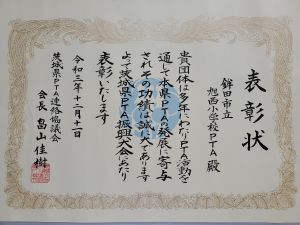 表彰状
鉾田市立
旭西小学校PTA殿
貴団体は多年にわたりPTA活動を
通して本県PTAの発展に寄与
されその功績は誠に大であります
よって茨城県PTA振興大会にあたり
表彰いたします
令和三年十二月十一日
茨城県PTA連絡協議会
会長 畠山佳樹